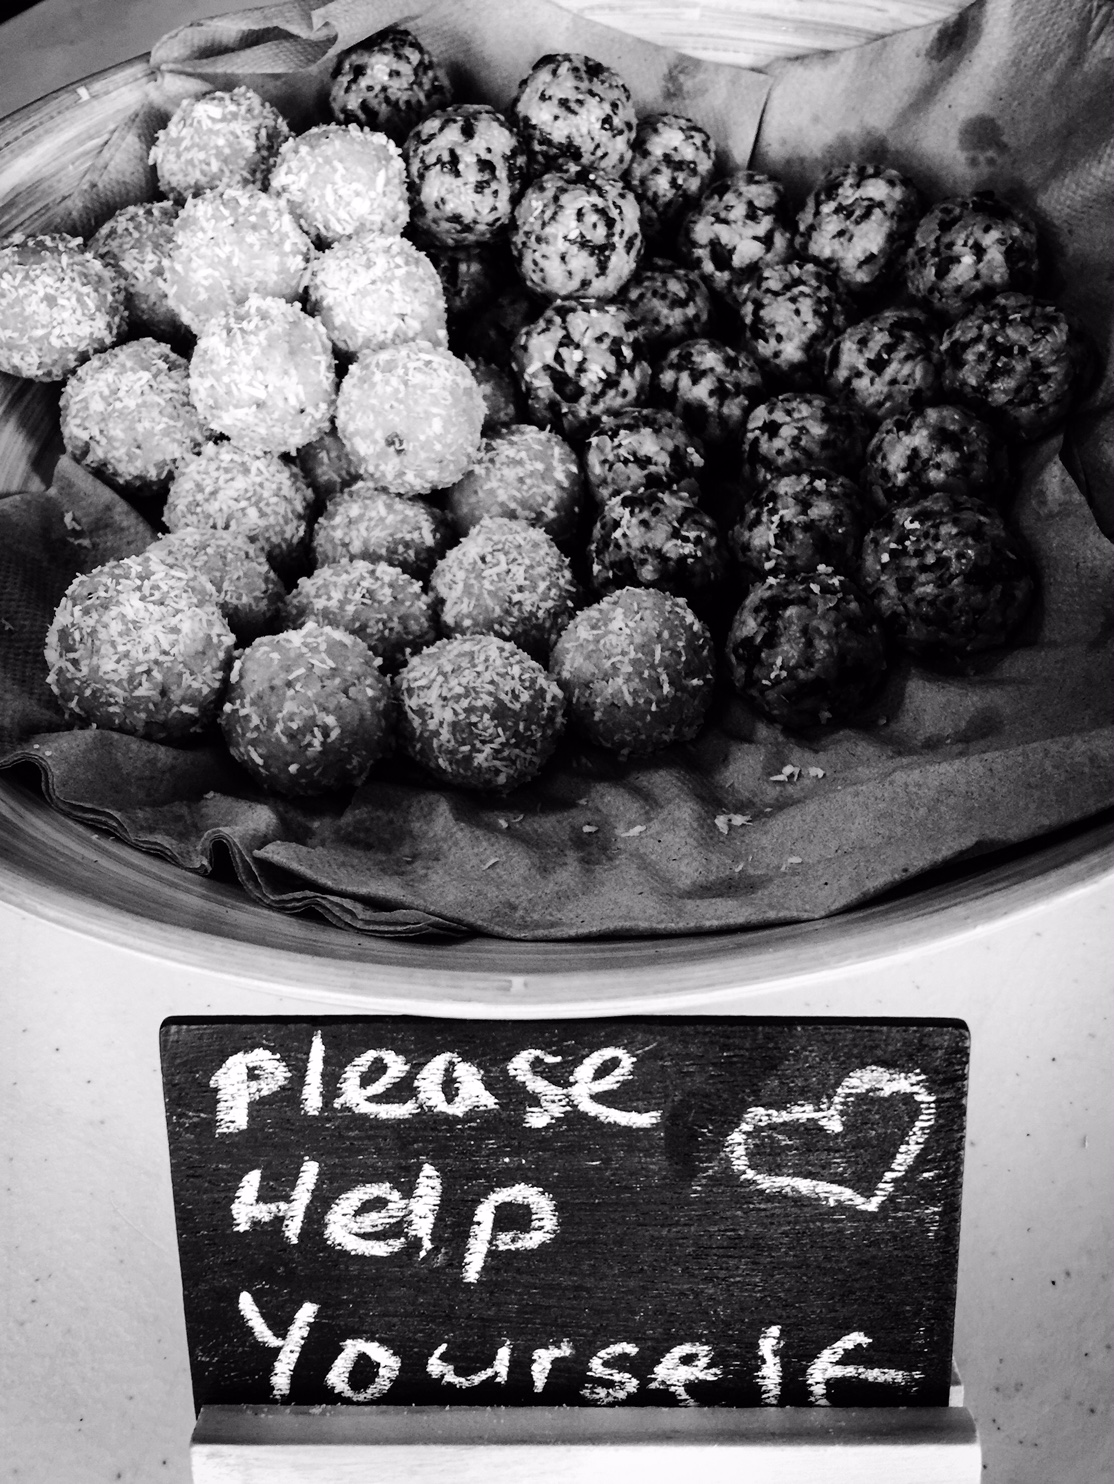 please
Help
Yourself